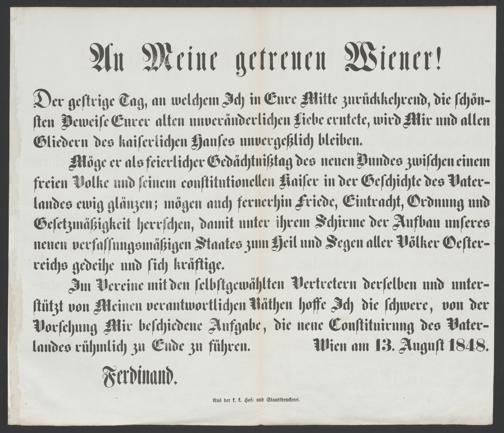 An Meine getreuen Wiener!
Der gestrige Tag, an welchem Ich in Eure Mitte zurückkehrend, die schön-
sten Beweise Eurer alten unveränderlichen Liebe erntete, wird Mir und allen
Gliedern des kaiserlichen Hauses unvergeßlich bleiben.
Möge er als feierlicher Gedächtnißtag des neuen Bundes zwischen einem
freien Volke und seinem constitutionellen Kaiser in der Geschichte des Vater-
landes ewig glänzen; mögen auch fernerhin Friede, Eintracht, Ordnung und
Gesetzmäßigkeit herrschen, damit unter ihrem Schirme der Aufbau unseres
neuen verfassungsmäßigen Staates zum Heil und Segen aller Völker Oester-
reichs gedeihe und sich kräftige.
Im Vereine mit den selbstgewählten Vertretern derselben und unter-
stützt von Meinen verantwortlichen Räthen hoffe Ich die schwere, von der
Vorsehung Mir beschiedene Aufgabe, die neue Constituirung des Vater-
landes rühmlich zu Ende zu führen. Wien am 13. August 1848.
Ferdinand.
Aus der k. k. Hof- und Staatsdruckerei.